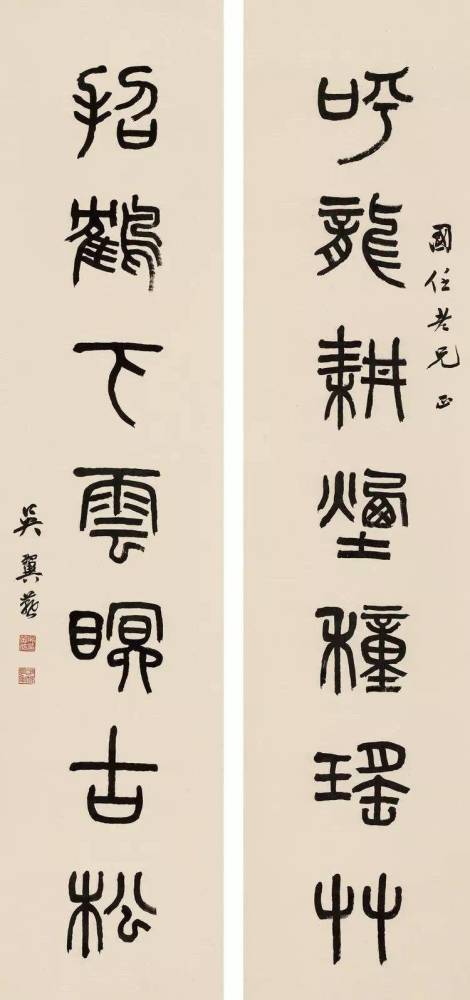 國任老兄正
呼龍耕煙種瑤草
招鶴下雲瞑古松
吳翼燕